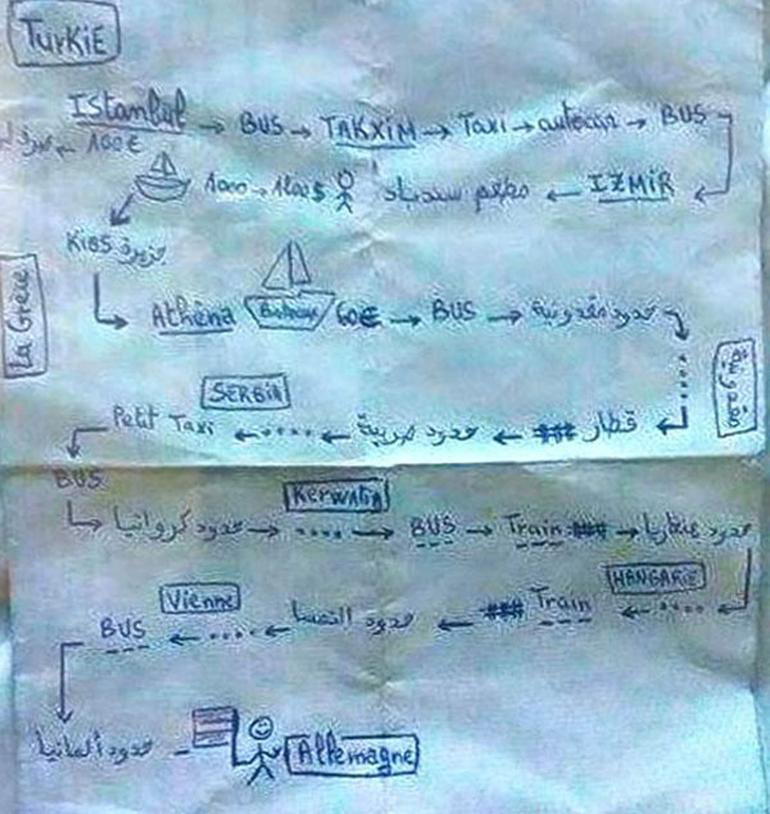 TurKiE
IStanbul → BUS → TAKXiM → Taxi → autocar → BUS
100€
IZMiR ← مطعم سندباد 1000 → 1200$
جزيرة Kios
La Grèce
Athèna 60€ → BUS → حدود مقدونية
مقدونية
SERBiA
قطار ← حدود صربية ← .... ← Petit Taxi
BUS
KerwAtia
حدود كرواتيا → .... → BUS → Train → حدود هنغاريا
HANGARiE
Vienne
.... ← Train ← حدود النمسا ← .... ← BUS
حدود ألمانيا
Allemagne